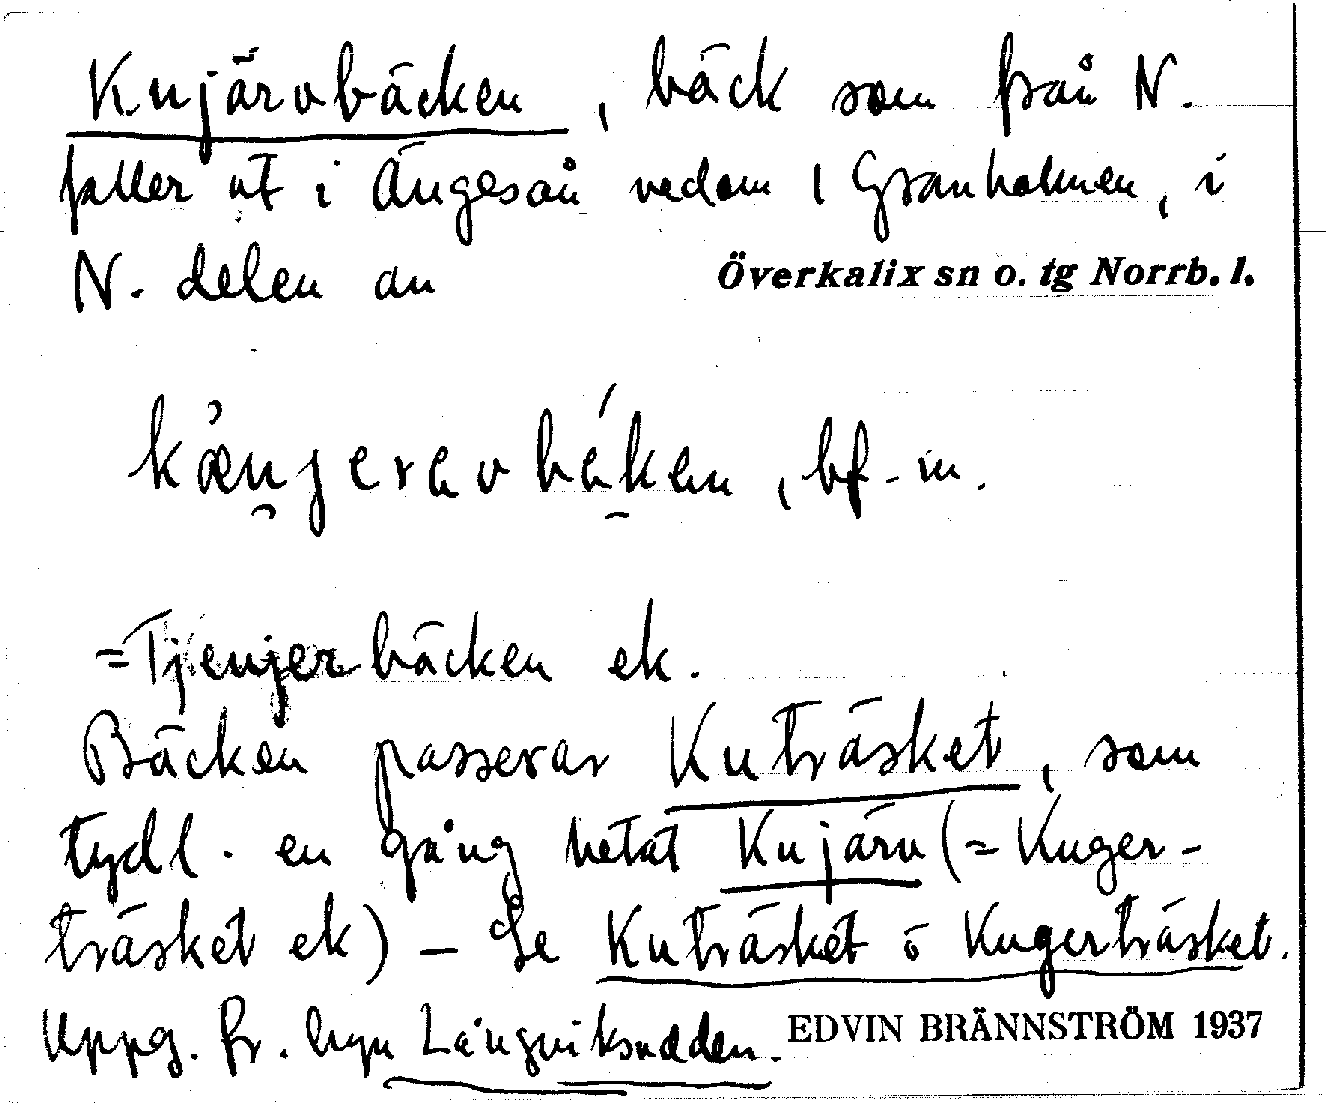 Kujärvbäcken, bäck som från N.
faller ut i Ängesån nedom l Granholmen, i
N. delen av Överkalix sn o. tg Norrb. l.
bf. m.
=Tjenjerbäcken ek.
Bäcken passerar Kuträsket, som
tydl. en gång hetat Kujärv (= Kuger-
träsket ek) – Se Kuträsket o Kugerträsket.
Uppg. fr. byn Långviksudden. EDVIN BRÄNNSTRÖM 1937